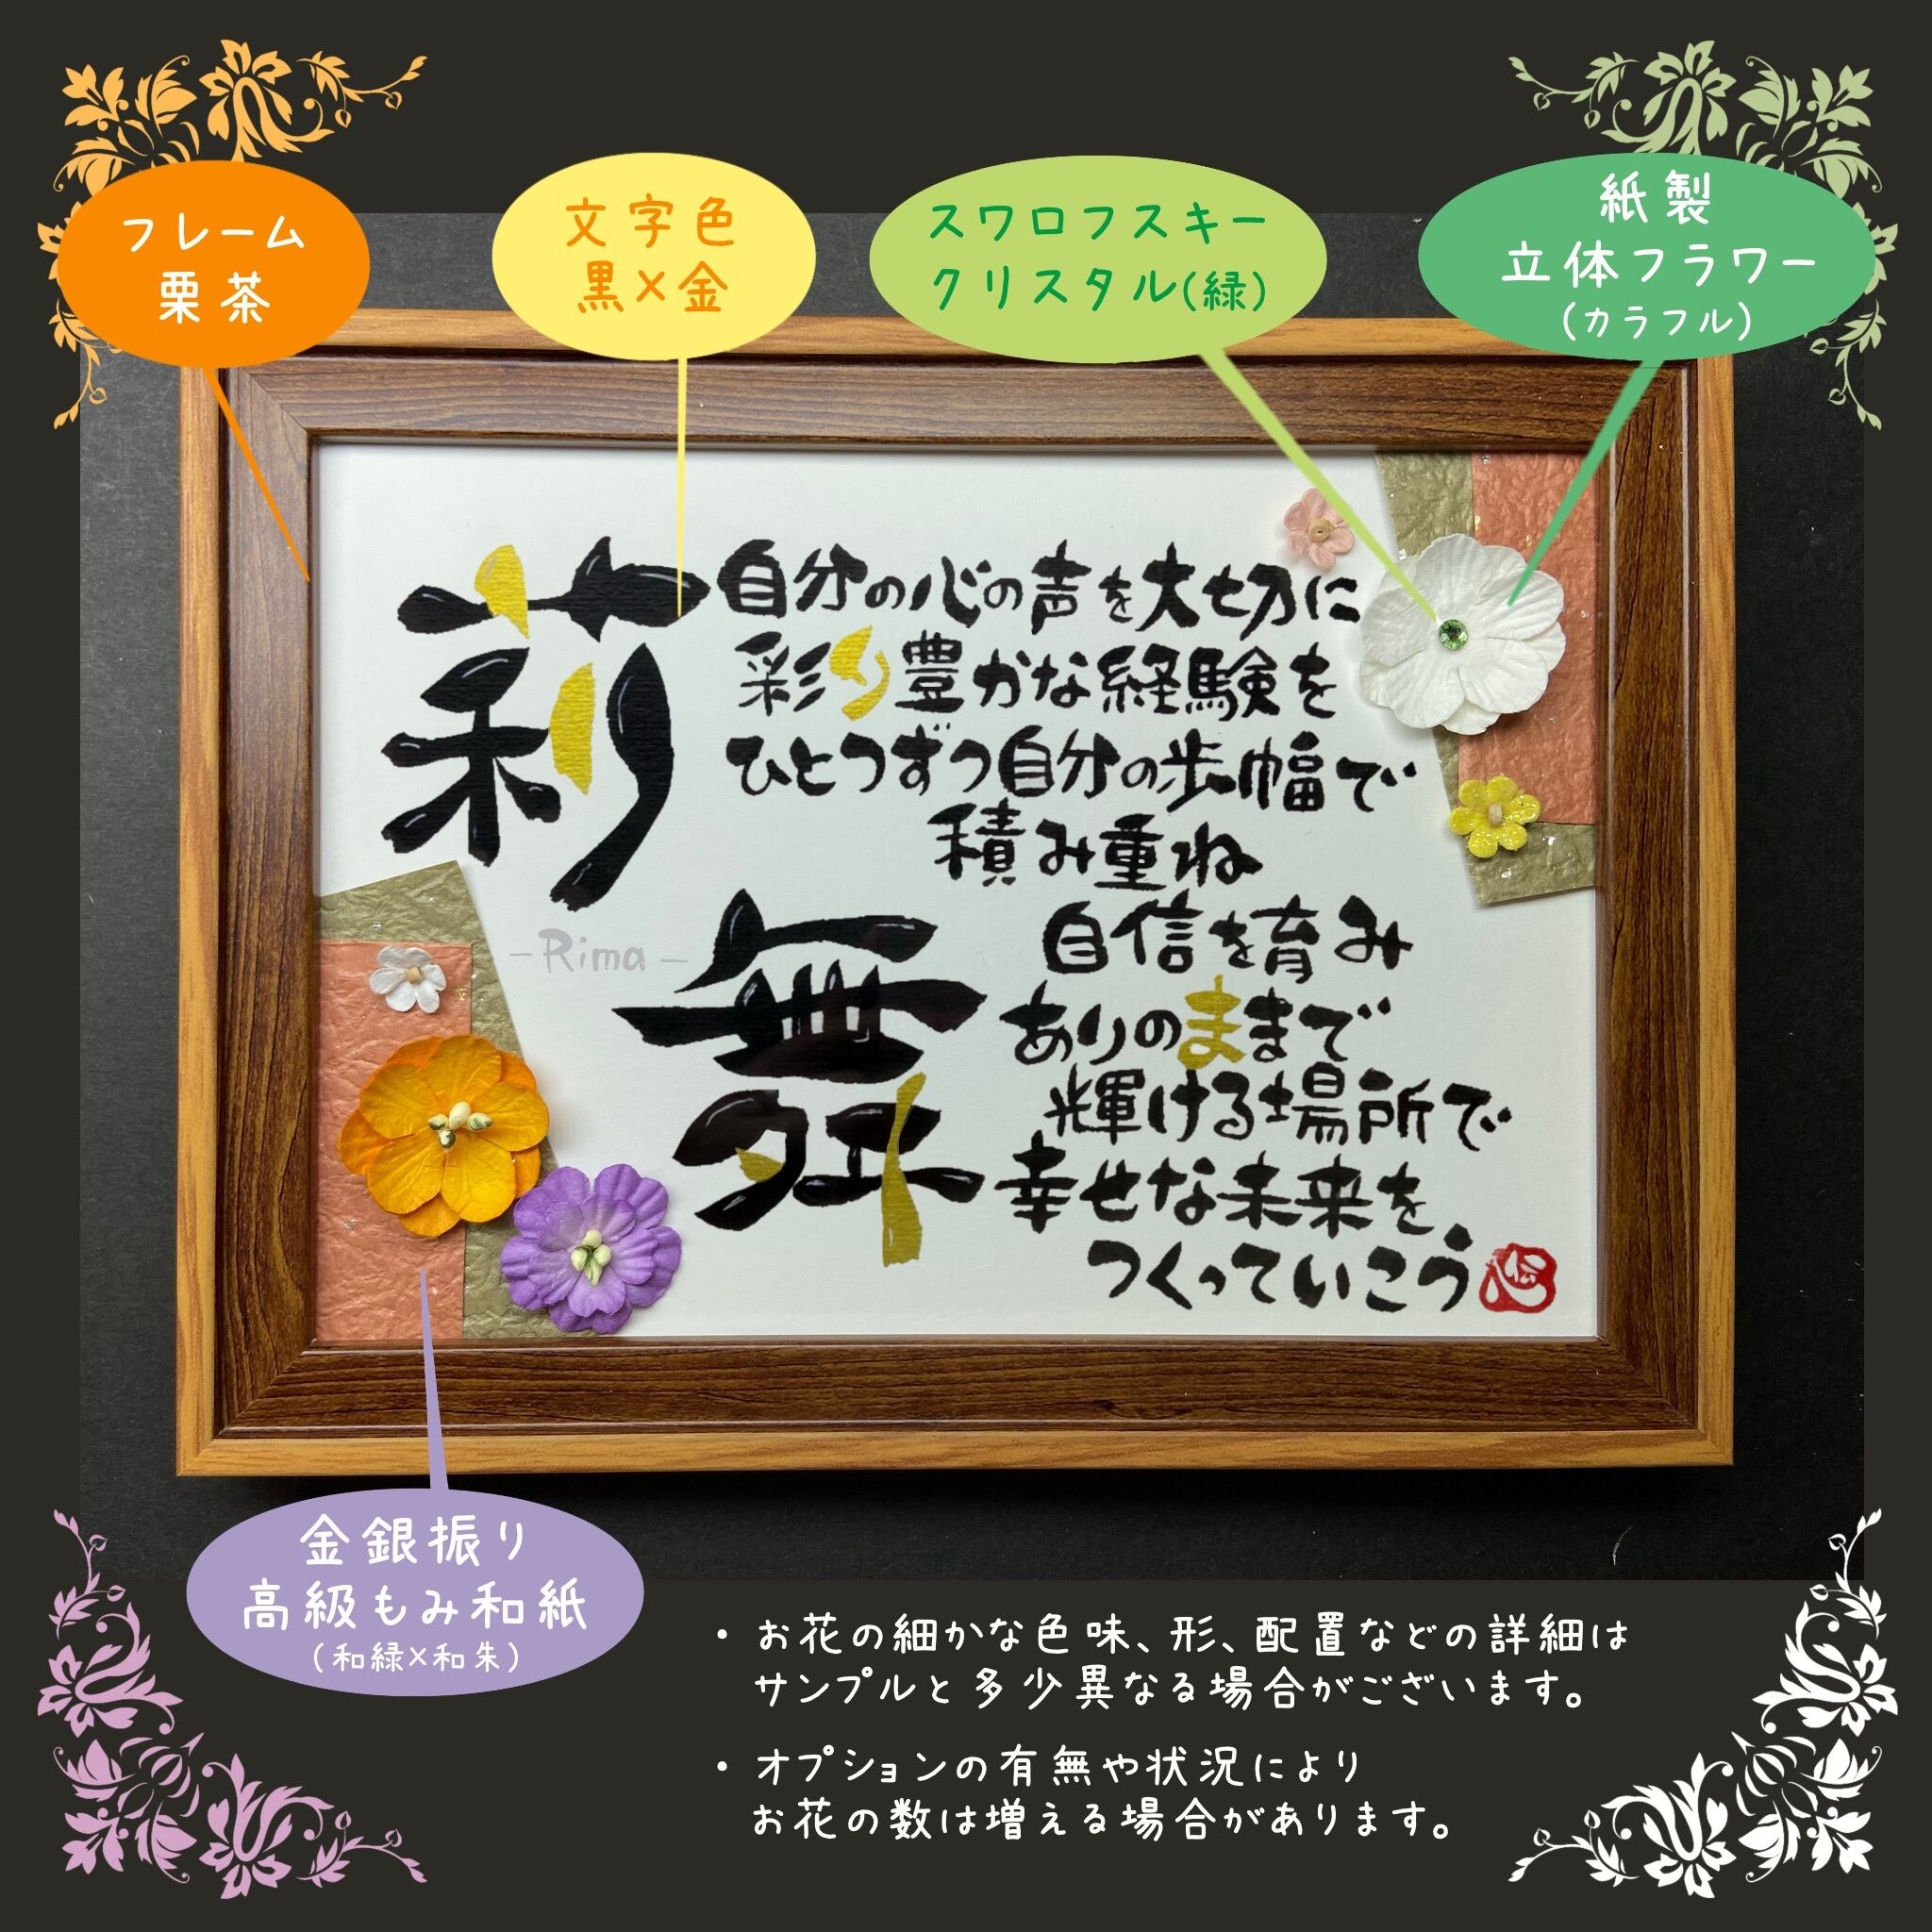 フレーム
栗茶
文字色
黒×金
スワロフスキー
クリスタル(緑)
紙製
立体フラワー
(カラフル)
莉
舞
-Rima-
自分の心の声を大切に
彩り豊かな経験を
ひとつずつ自分の歩幅で
積み重ね
自信を育み
ありのままで
輝ける場所で
幸せな未来を
つくっていこう
金銀振り
高級もみ和紙
(和緑×和朱)
・お花の細かな色味、形、配置などの詳細は
サンプルと多少異なる場合がございます。
・オプションの有無や状況により
お花の数は増える場合があります。